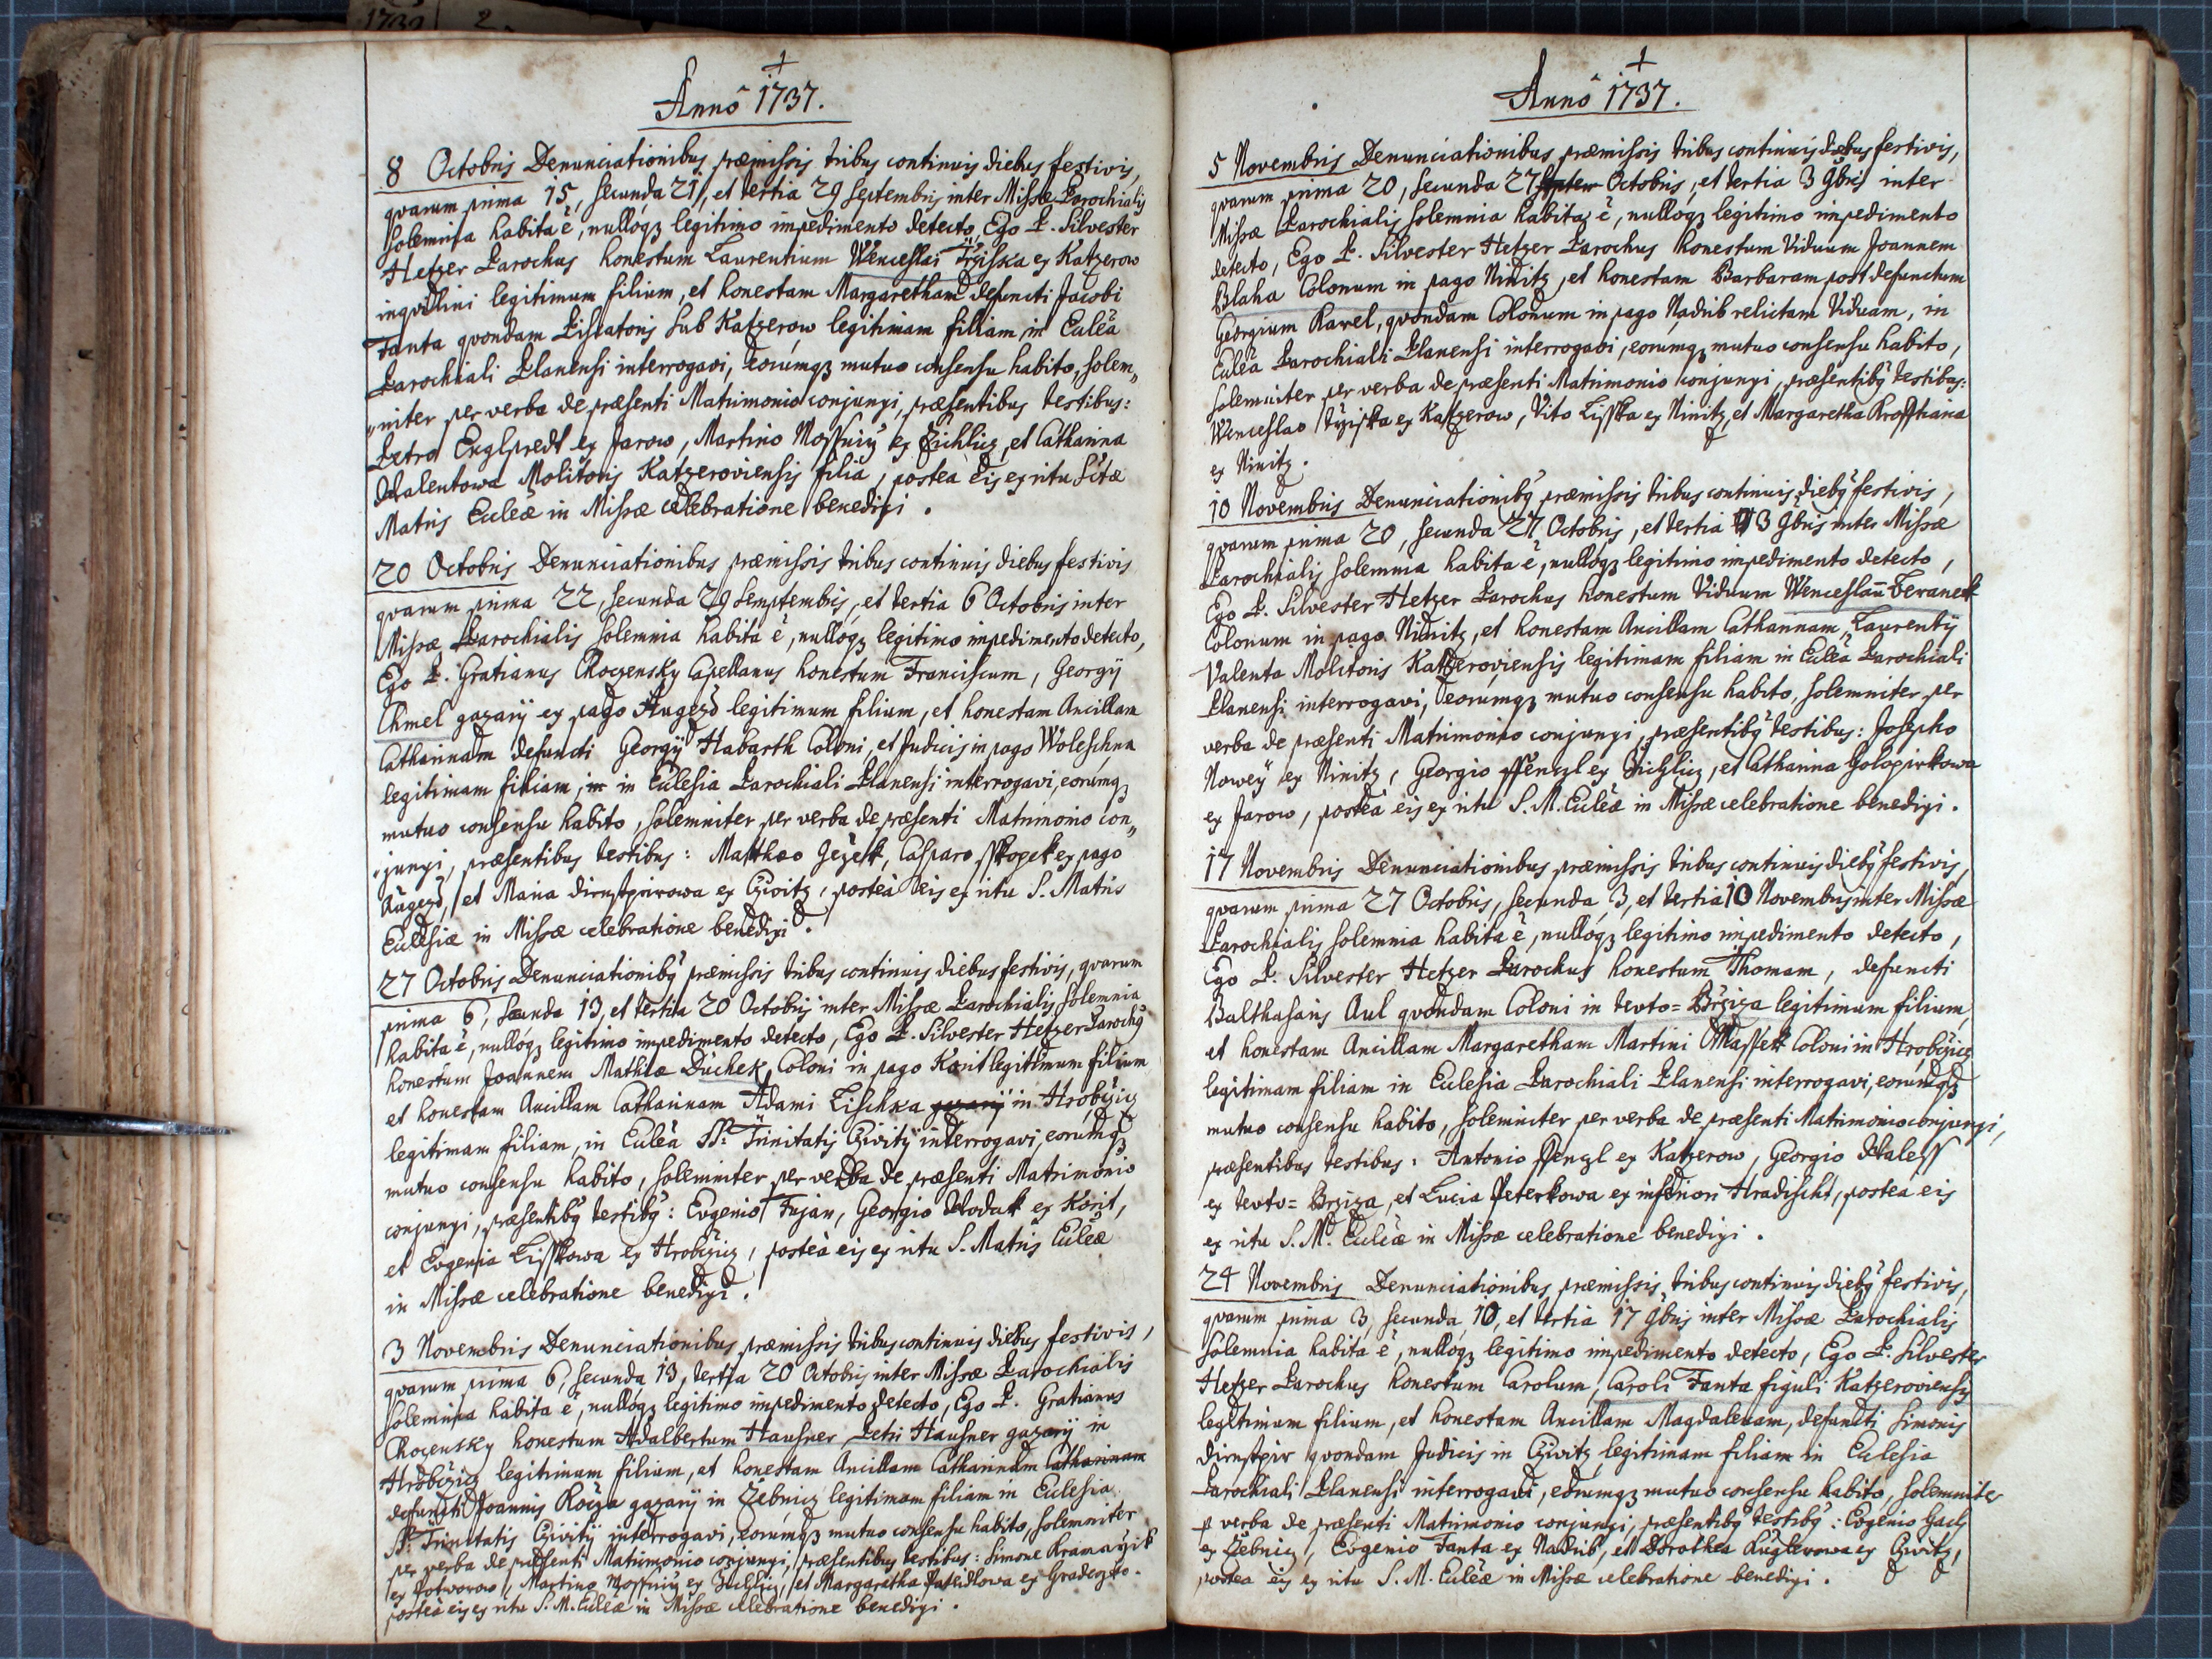 1739 2
Anno 1737.
8 Octobris Denunciationibus præmissis tribus continuis diebus festivis,
qvarum prima 15, secunda 21, et tertia 29 Septembris inter Missæ Parochialis
solemnia habita ē, nullóqz legitimo impedimento detecto, Ego P. Silvester
Hetzer Parochus honestum Laurentium Wenceslai Trziska ex Katzerow
inqvilini legitimum filium, et honestam Margaretham defuncti Jacobi
Fanta qvondam Piscatoris sub Katzerow legitimam filiam, in Eccleã
Parochiali Planensi interrogavi, eorúmqz mutuo consensu habito, solem„
„niter per verba de præsenti Matrimonio conjunxi, præsentibus testibus:
Petro Englpredt ex Jarow, Martino ex, et Catharina
Walentowa Molitoris Katzeroviensis filia, postea eis ex ritu Sctæ
Matris Eccleæ in Missæ celebratione benedixi.
20 Octobris Denunciationibus præmissis tribus continuis diebus festivis
qvarum prima 22, secunda 29 Semptembris, et tertia 6 Octobris inter
Missæ Parochialis solemnia habita ē, nullóqz legitimo impedimento detecto,
Ego P. Gratianus Chocensky Capellanus honestum Franciscum, Georgÿ
Chmel gazarÿ ex pago Augezd legitimum filium, et honestam Ancillam
Catharinam defuncti Georgÿ Habarth Coloni, et Judicis in pago Woleschna
legitimam filiam, in in Ecclesia Parochiali Planensi interrogavi, eorumqz
mutuo consensu habito, solemniter per verba de præsenti Matrimonio con„
„junxi, præsentibus testibus: Matthæo Jezek, Casparo ex pago
Augezd, et Maria ex Cziwitz, posteà eis ex ritu S. Matris
Ecclesiæ in Missæ celebratione benedixi.
27 Octobris Denunciationibg præmissis tribus continuis diebus festivis, qvarum
prima 6, secunda 13, et tertia 20 Octobris inter Missæ Parochialis solemnia
habita ē, nullóqz legitimo impedimento detecto, Ego P. Silvester Hetzer Parochg
honestum Joannem Mathiæ Duchek Coloni in pago Korit legitimum filium
et honestam Ancillam Catharinam Adami Lischka gazarÿ in Hrobczicz
legitimam filiam, in Eccleã SS: Trinitatis Cziwitÿ interrogavi, eorúmqz
mutuo consensu habito, solemniter per verba de præsenti Matrimonio
conjunxi, præsentibg testibg: Evgenio Fujan, Georgio Wodak ex Korit,
et Evgenia Lisskowa ex Hrobczicz, posteà eis ex ritu S. Matris Eccleæ
in Missæ celebratione benedixi.
3 Novembris Denunciationibus præmissis tribus continuis diebus festivis,
qvarum prima 6, secunda 13, tertia 20 Octobris inter Missæ Parochialis
solemnia habita ē, nullóqz legitimo impedimento detecto, Ego P. Gratianus
Chocensky honestum Adalbertum Hausner Petri Hausner gazarÿ in
Hrobczicz legitimum filium, et honestam Ancillam Catharinam Catharinam
defuncti Joannis gazarÿ in Zebnicz legitimam filiam in Ecclesia
SS: Trinitatis Cziwitÿ interrogavi, eorúmqz mutuo consensu habito, solemniter
per verba de præsenti Matrimonio conjunxi, præsentibus testibus: Simone
ex Potworow, Martino ex, et Margaretha ex
posteà eis ex ritu S. M. Eccleæ in Missæ celebratione benedixi.
Anno 1737.
5 Novembris Denunciationibus præmissis tribus continuis diebus festivis,
qvarum prima 20, secunda 27 Septem Octobris, et tertia 3 9bris inter
Missæ Parochialis solemnia habita ē, nullóqz legitimo impedimento
detecto, Ego P. Silvester Hetzer Parochus honestum Viduum Joannem
Blaha Colonum in pago Ninitz, et honestam Barbaram post defunctum
Georgium Karel, qvondam Colonum in pago Nadrib relictam Viduam, in
Eccleã Parochiali Planensi interrogavi, eorumqz mutuo consensu habito,
solemniter per verba de præsenti Matrimonio conjunxi, præsentibg testibus:
Wenceslao ex Katzerow, Vito Lisska ex Ninitz, et Margaretha
ex Ninitz.
10 Novembris Denunciationibg præmissis tribus continuis diebg festivis,
qvarum prima 20, secunda 27 Octobris, et tertia 3 9bris inter Missæ
Parochialis solemnia habita ē, nullóqz legitimo impedimento detecto,
Ego P. Silvester Hetzer Parochus honestum Viduum Wenceslaū Beranek
Colonum in pago Ninitz, et honestam Ancillam Catharinam, Laurentÿ
Valenta Molitoris Katzeroviensis legitimam filiam in Eccleã Parochiali
Planensi interrogavi, eorúmqz mutuo consensu habito, solemniter per
verba de præsenti Matrimonio conjunxi, præsentibg testibus: Josepho
Nowey ex Ninitz, Georgio ex, et Catharina
ex Jarow, posteà eis ex ritu S. M. Eccleæ in Missæ celebratione benedixi.
17 Novembris Denunciationibus præmissis tribus continuis diebg festivis,
qvarum prima 27 Octobris, secunda 3, et tertia 10 Novembris inter Missæ
Parochialis solemnia habita ē, nullóqz legitimo impedimento detecto,
Ego P. Silvester Hetzer Parochus honestum Thomam, defuncti
Balthasaris Aul qvondam Coloni in teuto= Brziza legitimum filium,
et honestam Ancillam Margaretham Martini Massek Coloni in Hrobczicz
legitimam filiam in Ecclesia Parochiali Planensi interrogavi, eorumqz
mutuo consensu habito, solemniter per verba de præsenti Matrimonio conjunxi,
præsentibus testibus: Antonio ex Katzerow, Georgio Waless
ex teuto= Brziza, et Lucia Peterkowa ex inferiori Hradischt, posteà eis
ex ritu S. M. Eccleæ in Missæ celebratione benedixi.
24 Novembris Denunciationibus præmissis tribus continuis diebg festivis,
qvarum prima 3, secunda 10, et tertia 17 9bris inter Missæ Parochialis
solemnia habita ē, nullóqz legitimo impedimento detecto, Ego P. Silvester
Hetzer Parochus honestum Carolum, Caroli Fanta figuli Katzeroviensis
legitimum filium, et honestam Ancillam Magdalenam, defuncti Simonis
qvondam Judicis in Cziwitz legitimam filiam in Ecclesia
Parochiali Planensi interrogavi, eorumqz mutuo consensu habito, solemniter
p verba de præsenti Matrimonio conjunxi, præsentibg testibg: Evgenio
ex Zebnicz, Evgenio Fanta ex Nadrib, et Dorothea Kuglerowa ex Cziwitz,
postea eis ex ritu S. M. Eccleæ in Missæ celebratione benedixi.